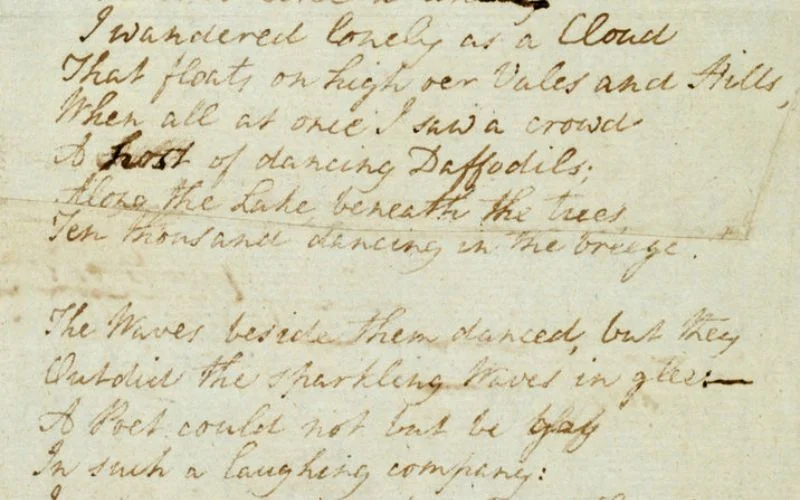 I wandered lonely as a Cloud
That floats on high oer Vales and Hills,
When all at once I saw a crowd
A host of dancing Daffodils;
Along the Lake, beneath the trees,
Ten thousand dancing in the breeze.
The Waves beside them danced, but they
Outdid the sparkling Waves in glee:—
A Poet could not but be gay
In such a laughing company: